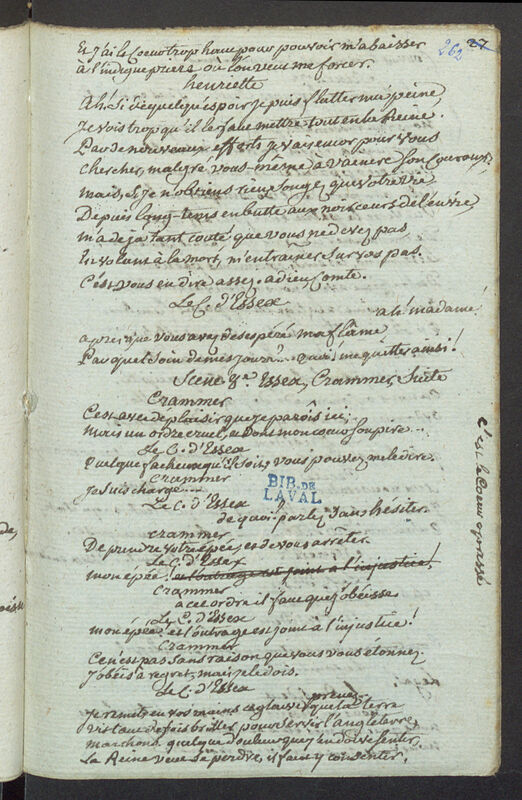 262 27
Et j'ai le Coeur trop haut pour pouvoir m'abaisser
à l'indigne priere où l'on veut me forcer.
henriette
Ah! Si de quelqu'espoir je puis flatter ma peine,
Je vois trop qu'il le faut mettre tout en la Reine.
Par de nouveaux efforts je vais encor pour vous
Chercher, malgré vous-même à vaincre Son Couroux;
mais, si je n'obtiens rien songez que votre vie
Depuis long-tems en butte aux noirceurs de l'envie,
m'a deja tant couté que vous ne devez pas
En volant à la mort, m'entrainer sur vos pas.
C'est vous en dire assez. adieu, Comte.
Le C. d'Essex
ah! madame!
apres que vous avez desesperé ma flâme
Par quel Soin de mes jours?... quoi! me quitter ainsi!
Scene 8e Essex, Crammer, Suite
Crammer
C'est avec deplaisir que je parois ici;
mais un ordre cruel, et dont mon coeur soupire...
Le C. d'Essex
Quelque facheux qu'il soit, vous pouvez me le dire.
Crammer
Je suis chargé....
Le C. d'Essex
de quoi? parlez sans hésiter.
crammer
De prendre votre épée, et de vous arrêter.
Le C. d'Essex
mon épée! et l'outrage est joint à l'injustice!
Crammer
a cet ordre il faut que j'obéisse.
Le C. d'Essex
mon épée! et l'outrage est joint à l'injustice!
Crammer
Ce n'est pas sans raison que vous vous étonnez.
J'obéis à regret, mais je le dois.
Le C. d'Essex
prenez.
Je remets en vos mains ce que la terre
Vit tant de fois briller pour servir l'angleterre,
marchons. quelque douleur que j'en doive sentir,
La Reine veut se perdre, il faut y consentir.
BIB. DE
LAVAL